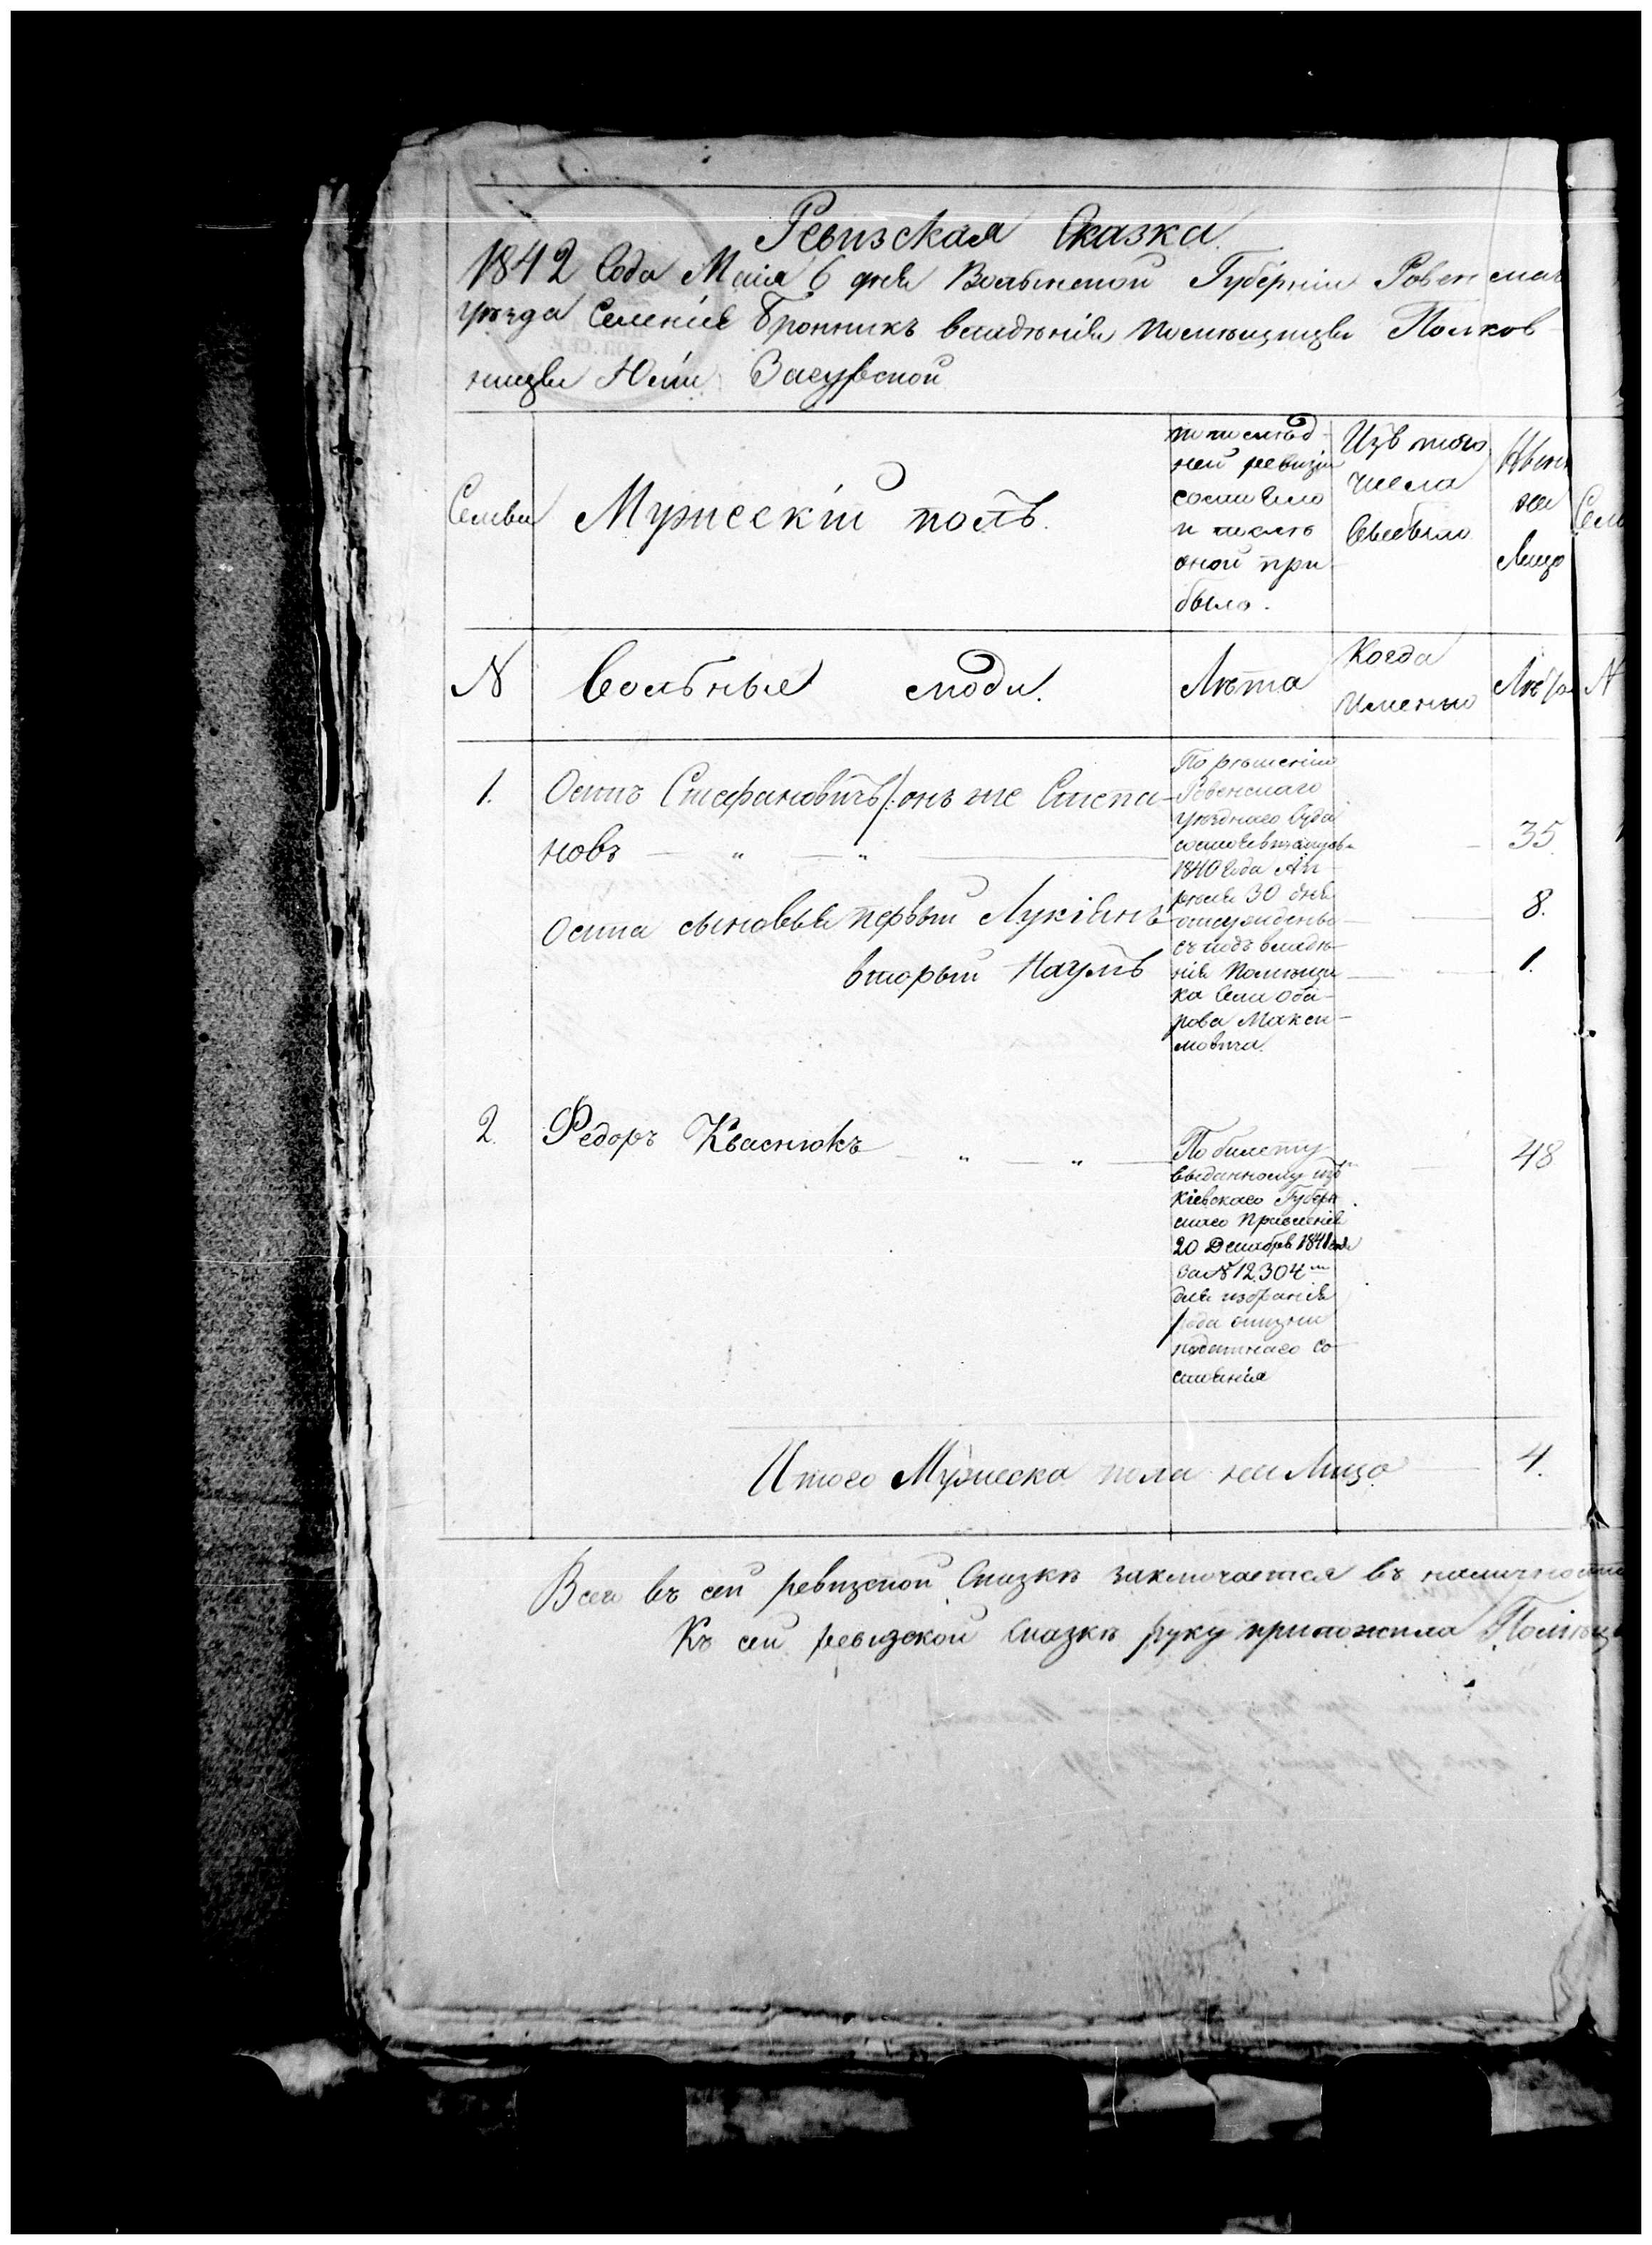 Ревизская Сказка
1842 Года Маія 6 дня Волынской Губерніи Ровенскаго
уезда Селенія Бронникъ владѣнія Помѣщицы Полков-
ницы Юліи
Семьи
Мужескій полъ.
по послѣд-
ней ревизіи
состояло
и послѣ
оной при
было.
Изъ того
числа
выбыло
Нын
на
Лицо
Сем
N
Вольные люди.
Лѣта
Когда
именно
Лѣта
N
1. Осипъ Стефановичъ /: онъ же Степа-
новъ — " — " — 35
Осипа сыновья первый Лукіянъ — 8.
вторый Наумъ — 1.
По рѣшенію
Ровенскаго
уѣзднаго Суда
1840 Года Ап-
рѣля 30 дня
съ подъ владѣ-
нія Помѣщи
ка
Макси-
мовича.
2. Федоръ Кваснюкъ — " — " — 48
По билету
выданному изъ
Кіевскаго Губерн
скаго Правленія
20 Декабря 1841 года
за N 12,304 м
для избранія
рода жизни
податнаго со-
стоянія
Итого Мужеска пола на Лицо — 4.
Всего въ сей ревизской Сказкѣ заключается въ наличности
Къ сей ревизской Сказкѣ руку приложила Помѣщ